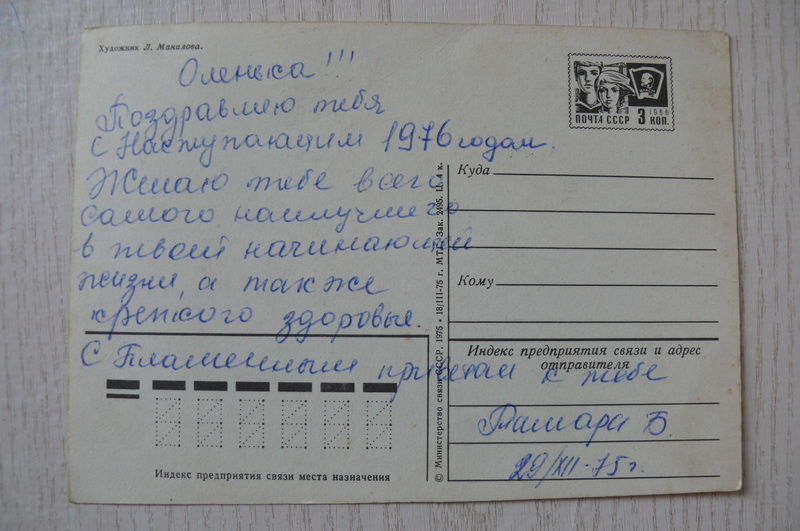 Художник Л. Манилова.
Оленька!!!
Поздравляю тебя
с Наступающим 1976 годом.
Желаю тебе всего
самого наилучшего
в твоей начинающей
жизни, а также
крепкого здоровья.
С Пламенным приветом к тебе
Тамара Б.
29/XII-75 г.
1966
ПОЧТА СССР 3 КОП.
Куда
Кому
Индекс предприятия связи и адрес
отправителя
© Министерство связи СССР. 1975 • 18/III-75 г. МТГ. Зак. 2495. Ц. 4 к.
Индекс предприятия связи места назначения